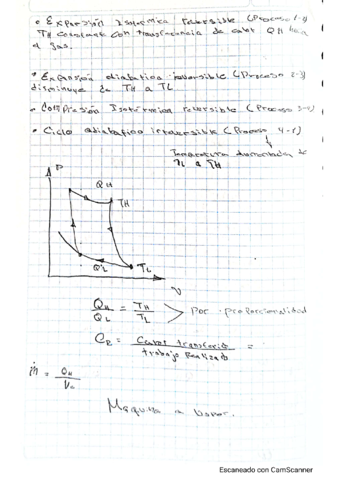 • Expansión Isotérmica reversible (Proceso 1-2)
TH constante con transferencia de calor QH hacia
el gas.
• Expansión adiabática reversible (Proceso 2-3)
disminuye de TH a TL
• Compresión Isotérmica reversible (Proceso 3-4)
• Ciclo adiabático reversible (Proceso 4-1)
Temperatura
TL a TH
P
QH
TH
QL
TL
V
QH / QL = TH / TL > Por proporcionalidad
= Calor / trabajo realizado =
ṁ =
Maquina a Vapor.
Escaneado con CamScanner